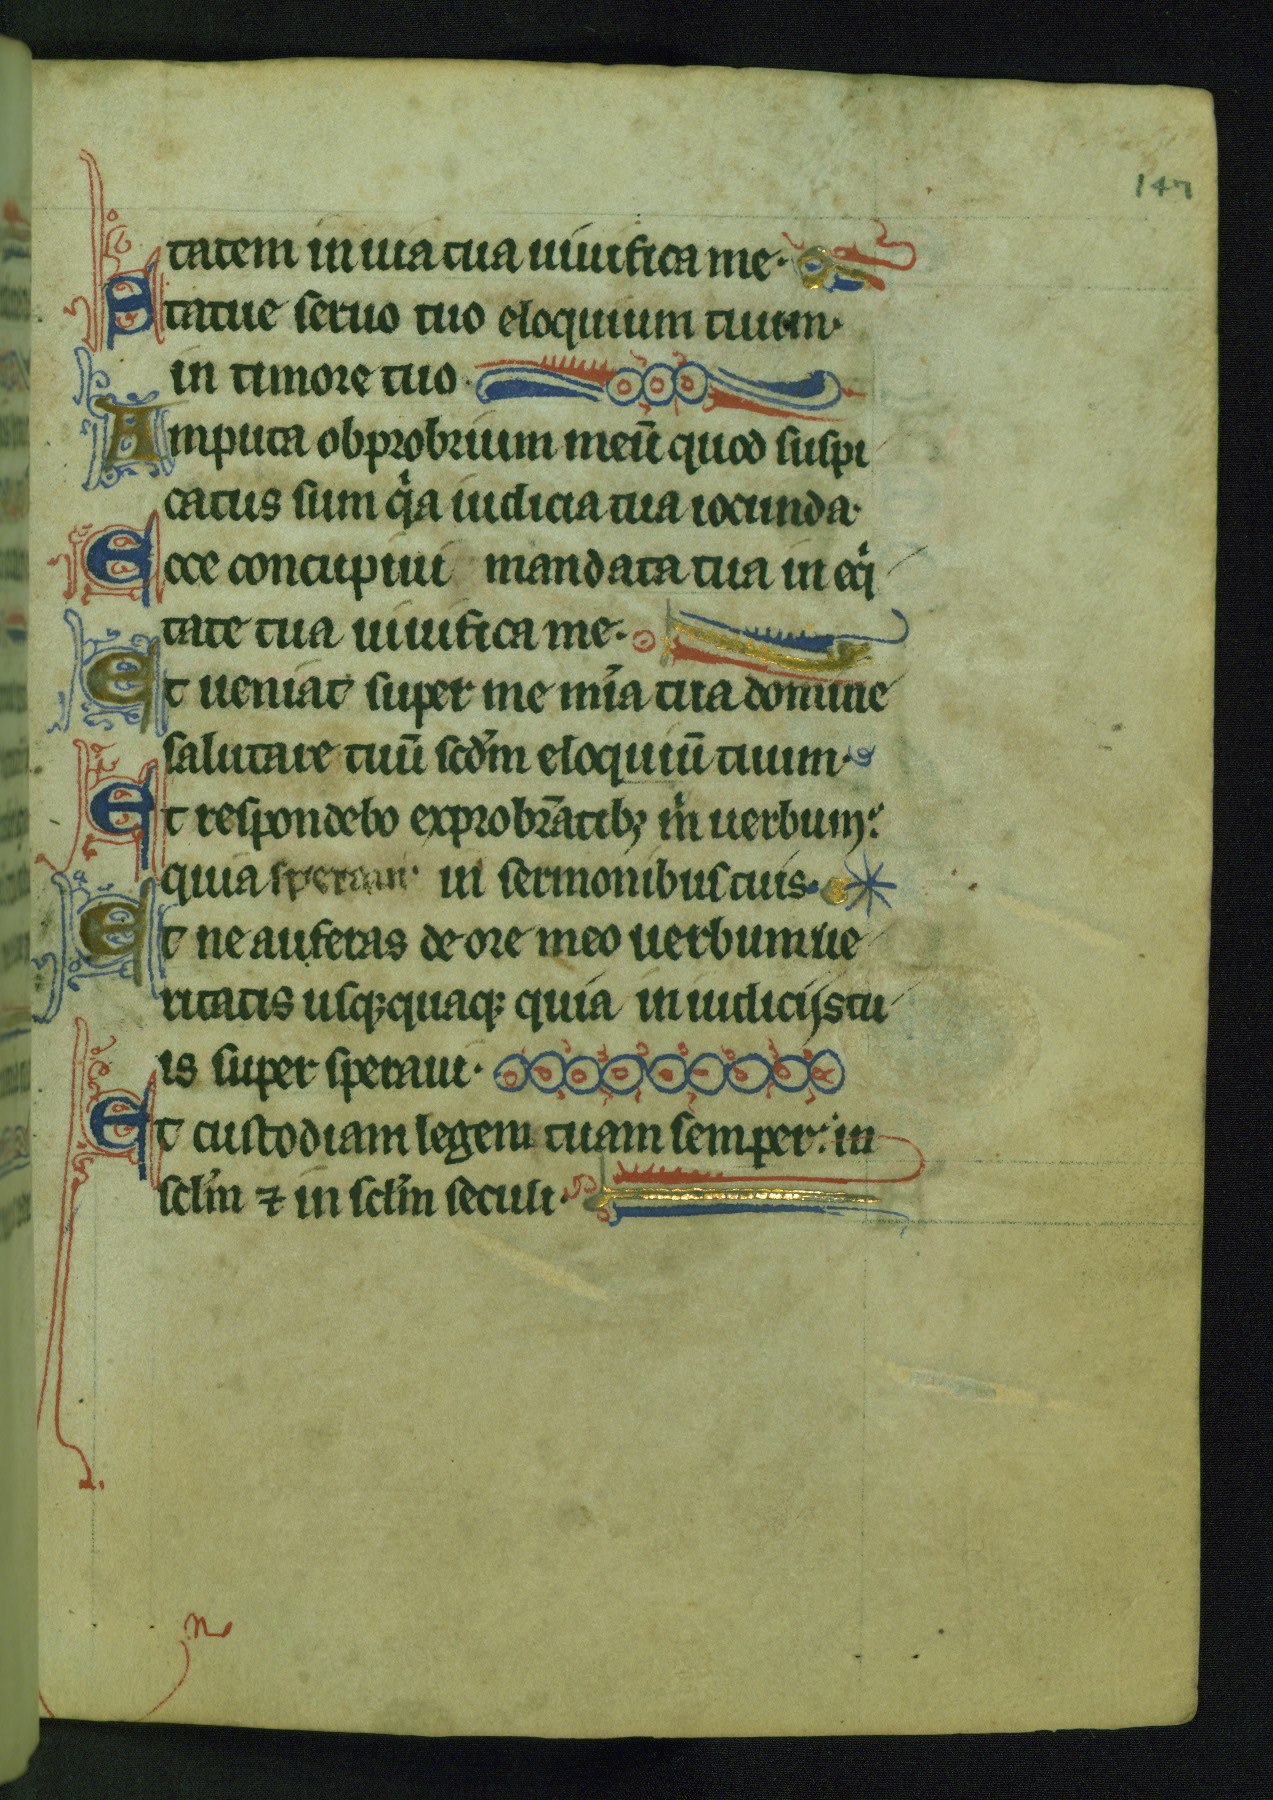 147
tatem in uia tua uiuifica me·
Statue seruo tuo eloquium tuum·
in timore tuo·
Amputa obprobrium meū quod suspi
catus sum qͥa iudicia tua iocunda·
Ecce concupiui mandata tua in eqͥ
tate tua uiuifica me·
Et ueniat super me mīa tua domine
salutare tuū scd̄m eloquiū tuum·
Et respondebo exprobrātibꝫ m̄ uerbum:
quia speraui in sermonibus tuis·
Et ne auferas de ore meo uerbum ue
ritatis usqꝫquaqꝫ quia in iudicijs tu
is super speraui·
Et custodiam legem tuam semper: in
scl̄m ⁊ in scl̄m seculi·